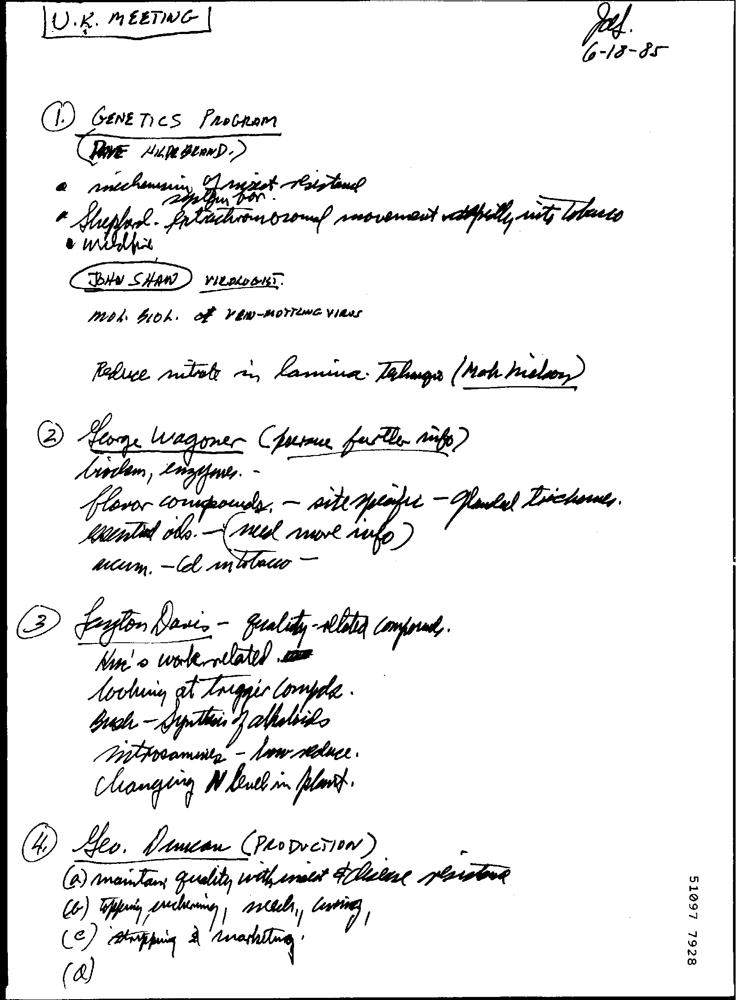 U.K. MEETING
6-18-85
1. GENETICS PROGRAM
(DAVE HILDEBRAND.)
• mechanism of insect resistance
• Shepherd. Extrachromosomal movement into tobacco
• wildfire
JOHN SHAW VIROLOGIST.
MOL. BIOL. of VEIN-MOTTLING VIRUS
Reduce nitrate in lamina. (Mark Nielsen)
2 George Wagoner (pursue further info)
biochem, enzymes. -
flavor compounds. - site specific - glandal trichomes.
essential oils. - (need more info)
accum. - Cd in tobacco -
3 Layton Davis - quality-related compounds.
work related.
looking at trigger compds.
Bush - Synthesis of alkaloids
nitrosamines - how reduce.
Changing N level in plant.
4. Geo. Duncan (PRODUCTION)
(a) maintain quality with insect & disease resistance
(b) topping, suckering, mech., curing,
(c) stripping & marketing.
(d)
51097 7928